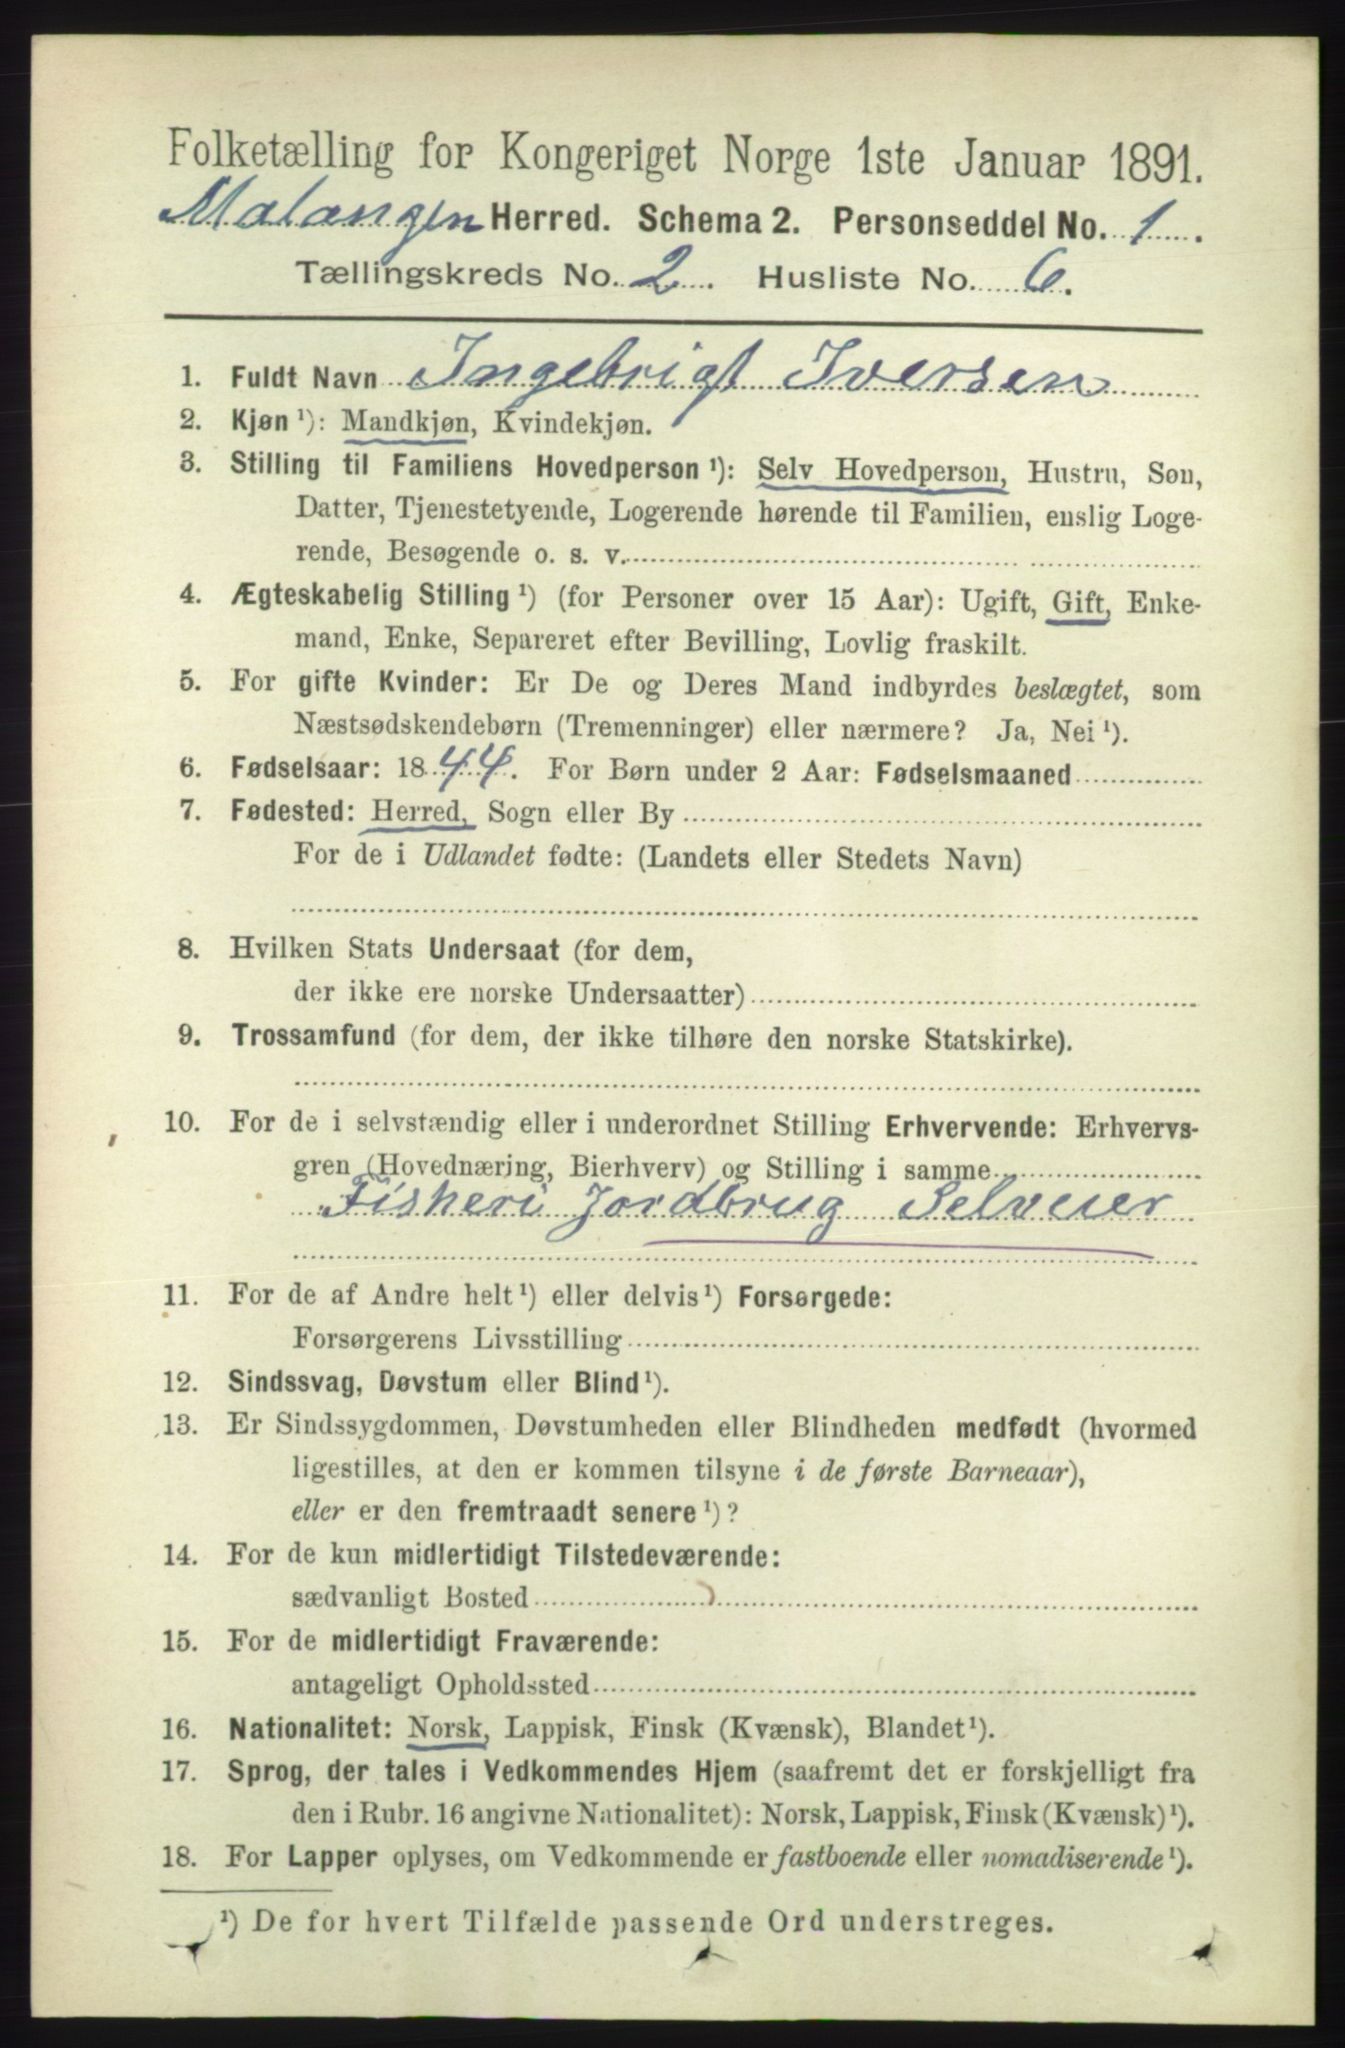 Folketælling for Kongeriget Norge 1ste Januar 1891.
Malangen Herred. Schema 2. Personseddel No. 1.
Tællingskreds No. 2. Husliste No. 6.
1. Fuldt Navn Ingebrigt Iversen
2. Kjøn ¹): Mandkjøn, Kvindekjøn.
3. Stilling til Familiens Hovedperson ¹): Selv Hovedperson, Hustru, Søn,
Datter, Tjenestetyende, Logerende hørende til Familien, enslig Loge-
rende, Besøgende o. s. v.
4. Ægteskabelig Stilling ¹) (for Personer over 15 Aar): Ugift, Gift, Enke-
mand, Enke, Separeret efter Bevilling, Lovlig fraskilt.
5. For gifte Kvinder: Er De og Deres Mand indbyrdes beslægtet, som
Næstsødskendebørn (Tremenninger) eller nærmere? Ja, Nei ¹).
6. Fødselsaar: 1844. For Børn under 2 Aar: Fødselsmaaned
7. Fødested: Herred, Sogn eller By
For de i Udlandet fødte: (Landets eller Stedets Navn)
8. Hvilken Stats Undersaat (for dem,
der ikke ere norske Undersaatter)
9. Trossamfund (for dem, der ikke tilhøre den norske Statskirke).
10. For de i selvstændig eller i underordnet Stilling Erhvervende: Erhvervs-
gren (Hovednæring, Bierhverv) og Stilling i samme
Fisheri Jordbrug Selveier
11. For de af Andre helt ¹) eller delvis ¹) Forsørgede:
Forsørgerens Livsstilling
12. Sindssvag, Døvstum eller Blind ¹).
13. Er Sindssygdommen, Døvstumheden eller Blindheden medfødt (hvormed
ligestilles, at den er kommen tilsyne i de første Barneaar),
eller er den fremtraadt senere ¹)?
14. For de kun midlertidigt Tilstedeværende:
sædvanligt Bosted
15. For de midlertidigt Fraværende:
antageligt Opholdssted
16. Nationalitet: Norsk, Lappisk, Finsk (Kvænsk), Blandet ¹).
17. Sprog, der tales i Vedkommendes Hjem (saafremt det er forskjelligt fra
den i Rubr. 16 angivne Nationalitet): Norsk, Lappisk, Finsk (Kvænsk) ¹).
18. For Lapper oplyses, om Vedkommende er fastboende eller nomadiserende ¹).
¹) De for hvert Tilfælde passende Ord understreges.